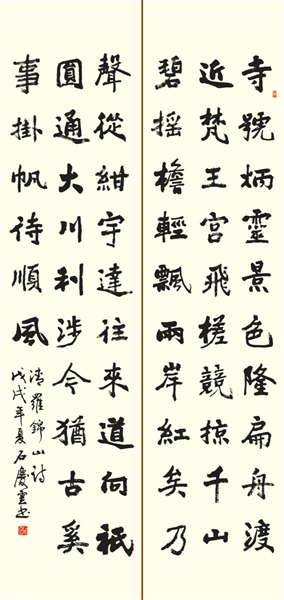 寺號炳靈景色隆扁舟渡
近梵王宮飛槎競掠千山
碧搖檐輕飄兩岸紅矣乃
聲從紺宇達往來道向祇
圓通大川利涉今猶古奚
事掛帆待順風
清羅錦山詩
戊戌年夏石慶雲書